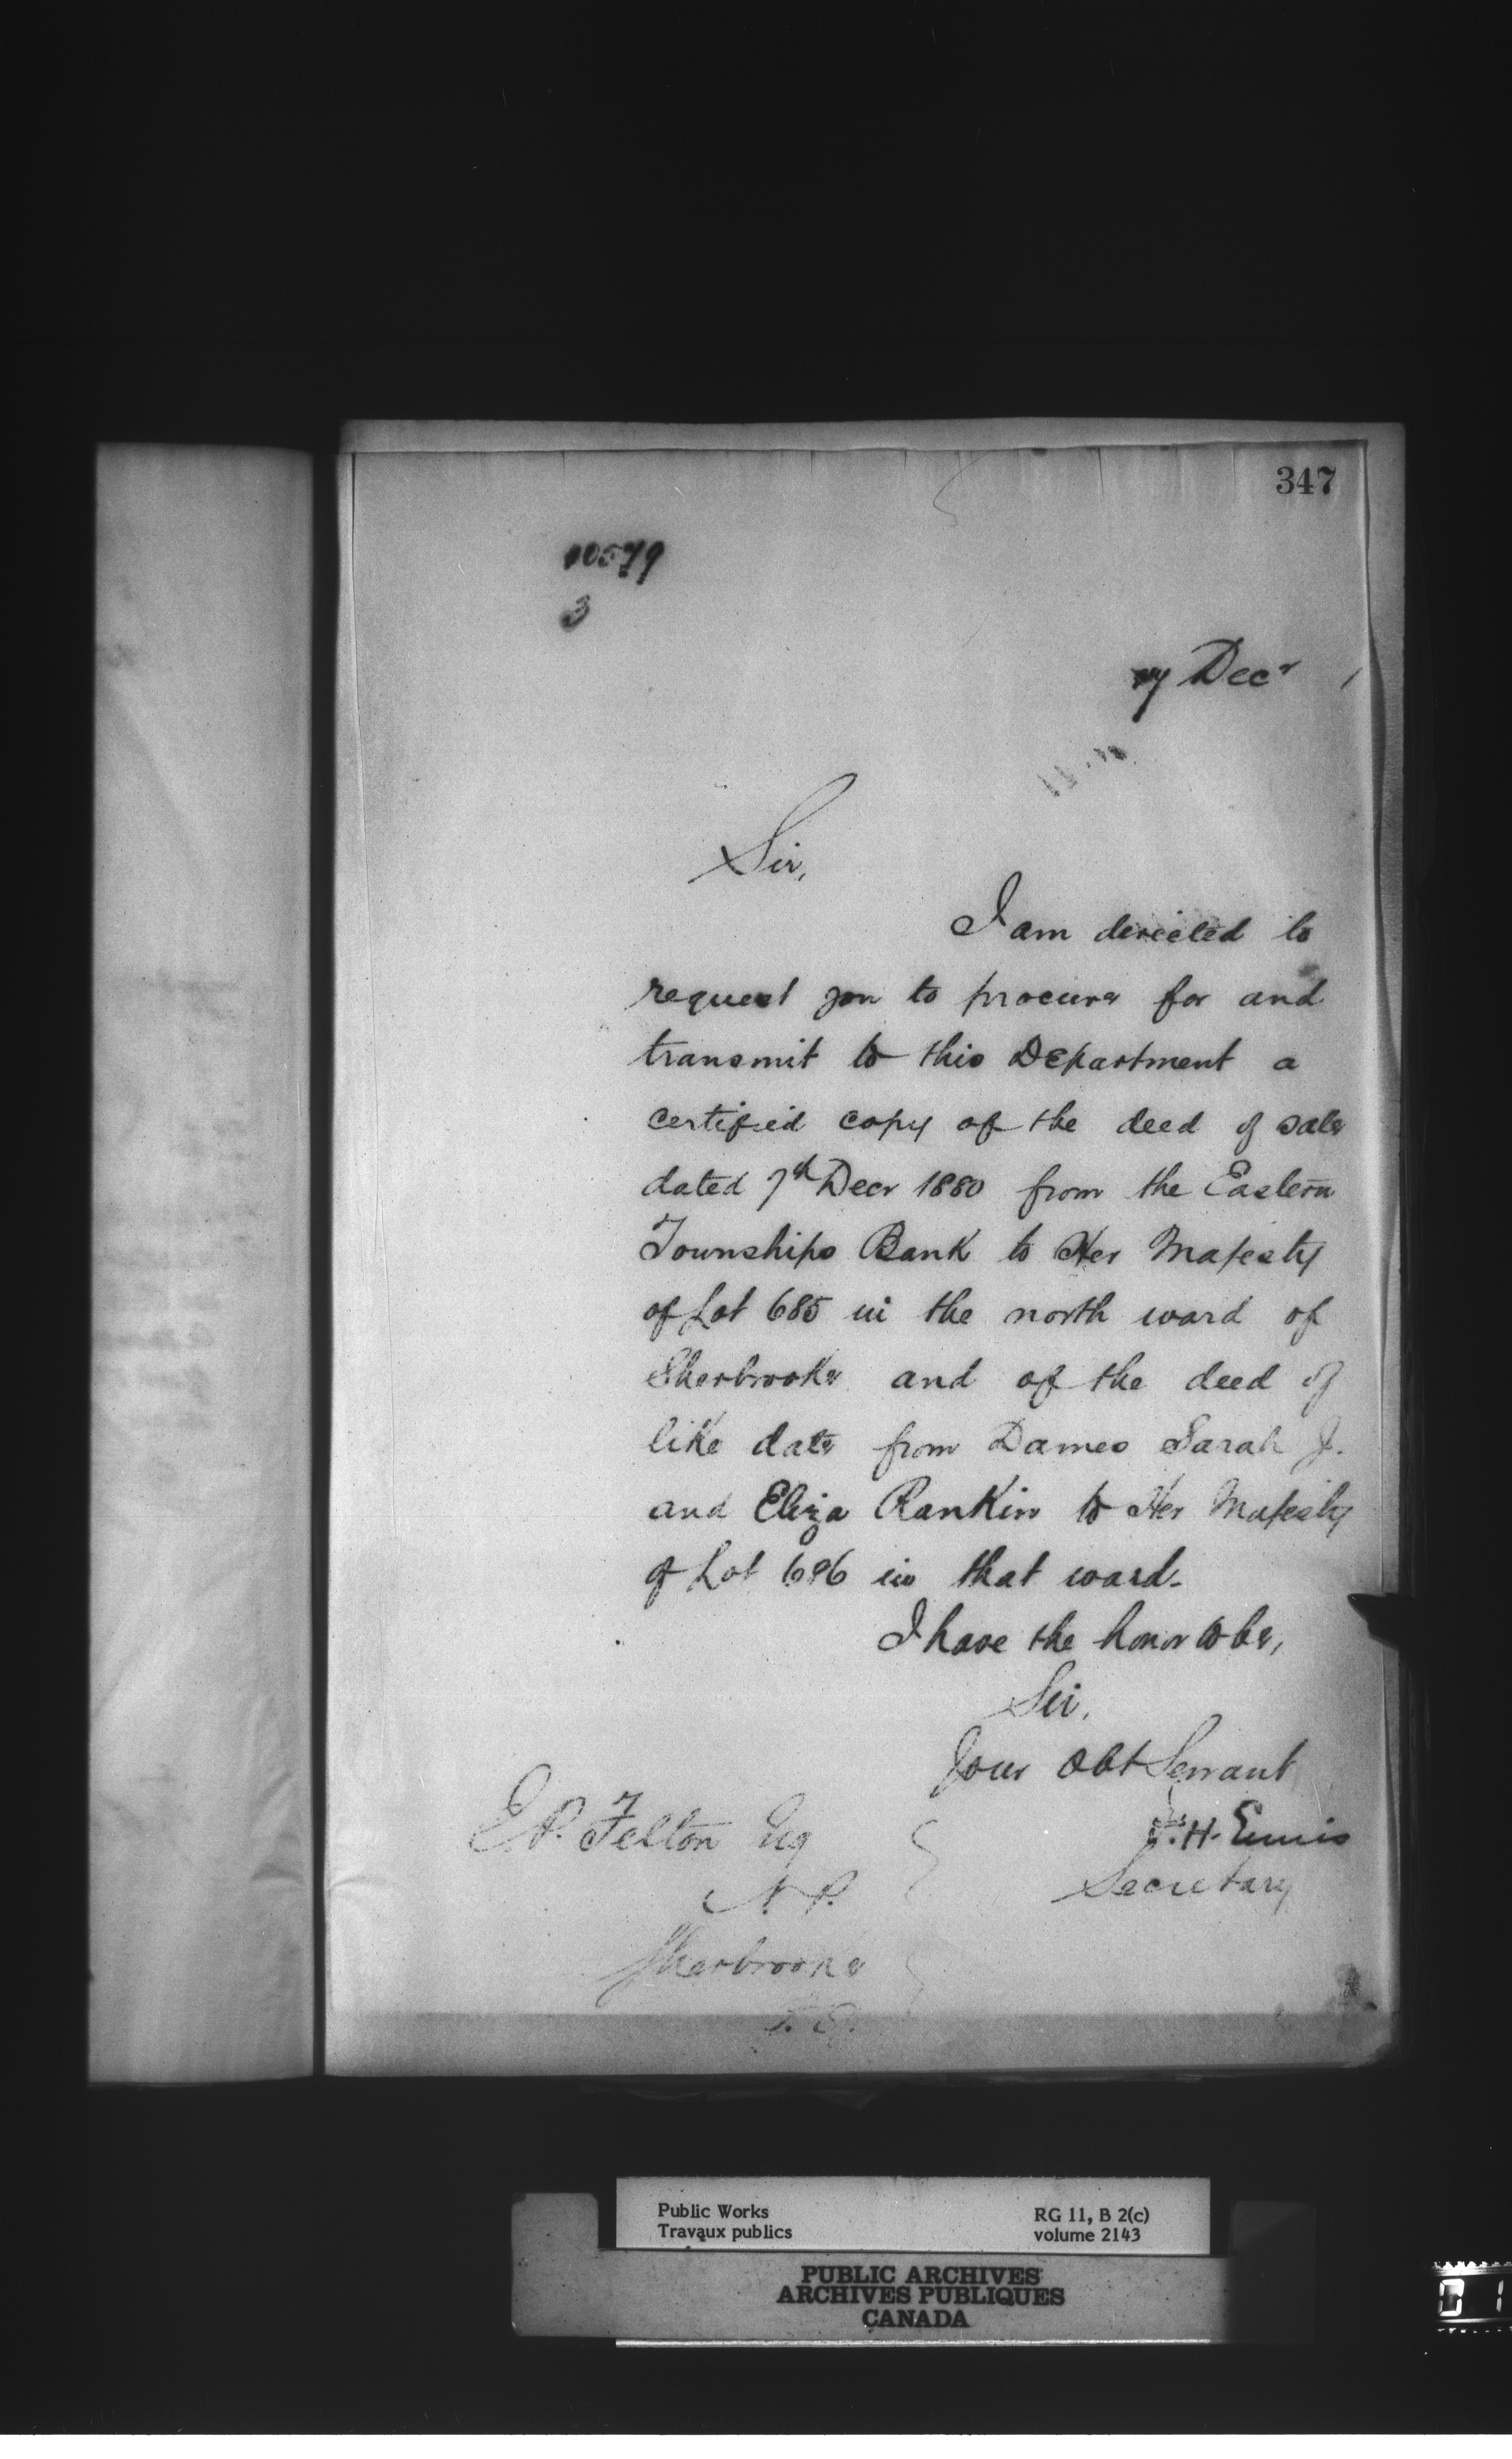 347
10579
3
Decr 1
Sir,
I am directed to
request you to procure for and
transmit to this Department a
certified copy of the deed of sale
dated 7th Decr 1880 from the Eastern
Townships Bank to Her Majesty
of Lot 685 in the north ward of
Sherbrooke and of the deed of
like date from Dames Sarah J.
and Eliza Rankin to Her Majesty
of Lot 686 in that ward.
I have the honor to be,
Sir,
Your Obt Servant
F. H. Ennis
Secretary
E. P. Felton Esq
N. P.
Sherbrooke
Public Works
Travaux publics
RG 11, B 2(c)
volume 2143
PUBLIC ARCHIVES
ARCHIVES PUBLIQUES
CANADA
01